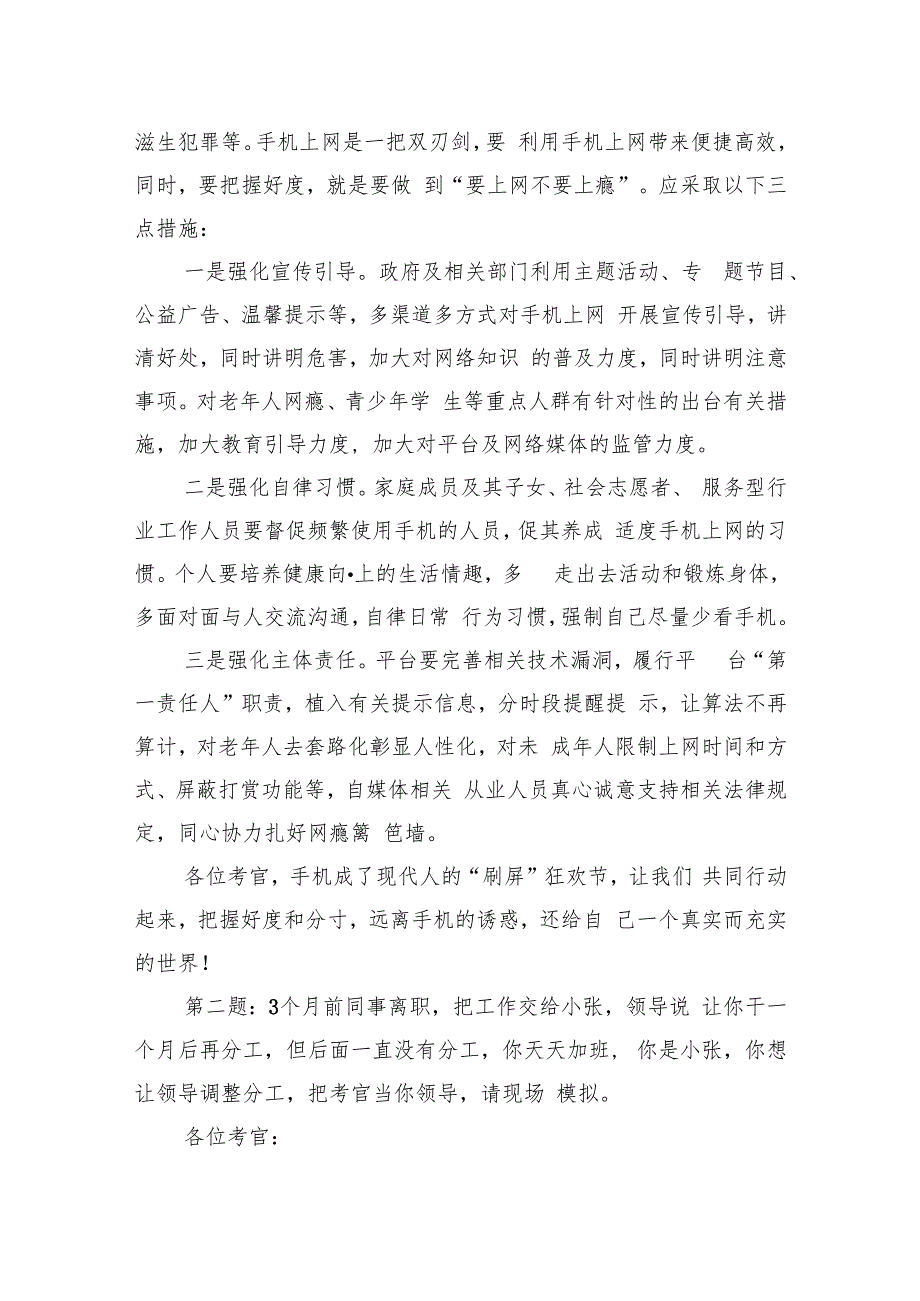 滋生犯罪等。手机上网是一把双刃剑，要 利用手机上网带来便捷高效，
同时，要把握好度，就是要做 到“要上网不要上瘾”。应采取以下三
点措施：
一是强化宣传引导。政府及相关部门利用主题活动、专 题节目、
公益广告、温馨提示等，多渠道多方式对手机上网 开展宣传引导，讲
清好处，同时讲明危害，加大对网络知识 的普及力度，同时讲明注意
事项。对老年人网瘾、青少年学 生等重点人群有针对性的出台有关措
施，加大教育引导力度，加大对平台及网络媒体的监管力度。
二是强化自律习惯。家庭成员及其子女、社会志愿者、 服务型行
业工作人员要督促频繁使用手机的人员，促其养成 适度手机上网的习
惯。个人要培养健康向•上的生活情趣，多 走出去活动和锻炼身体，
多面对面与人交流沟通，自律日常 行为习惯，强制自己尽量少看手机。
三是强化主体责任。平台要完善相关技术漏洞，履行平 台“第
一责任人”职责，植入有关提示信息，分时段提醒提 示，让算法不再
算计，对老年人去套路化彰显人性化，对未 成年人限制上网时间和方
式、屏蔽打赏功能等，自媒体相关 从业人员真心诚意支持相关法律规
定，同心协力扎好网瘾篱 笆墙。
各位考官，手机成了现代人的“刷屏”狂欢节，让我们 共同行动
起来，把握好度和分寸，远离手机的诱惑，还给自 己一个真实而充实
的世界！
第二题：3个月前同事离职，把工作交给小张，领导说 让你干一
个月后再分工，但后面一直没有分工，你天天加班， 你是小张，你想
让领导调整分工，把考官当你领导，请现场 模拟。
各位考官：